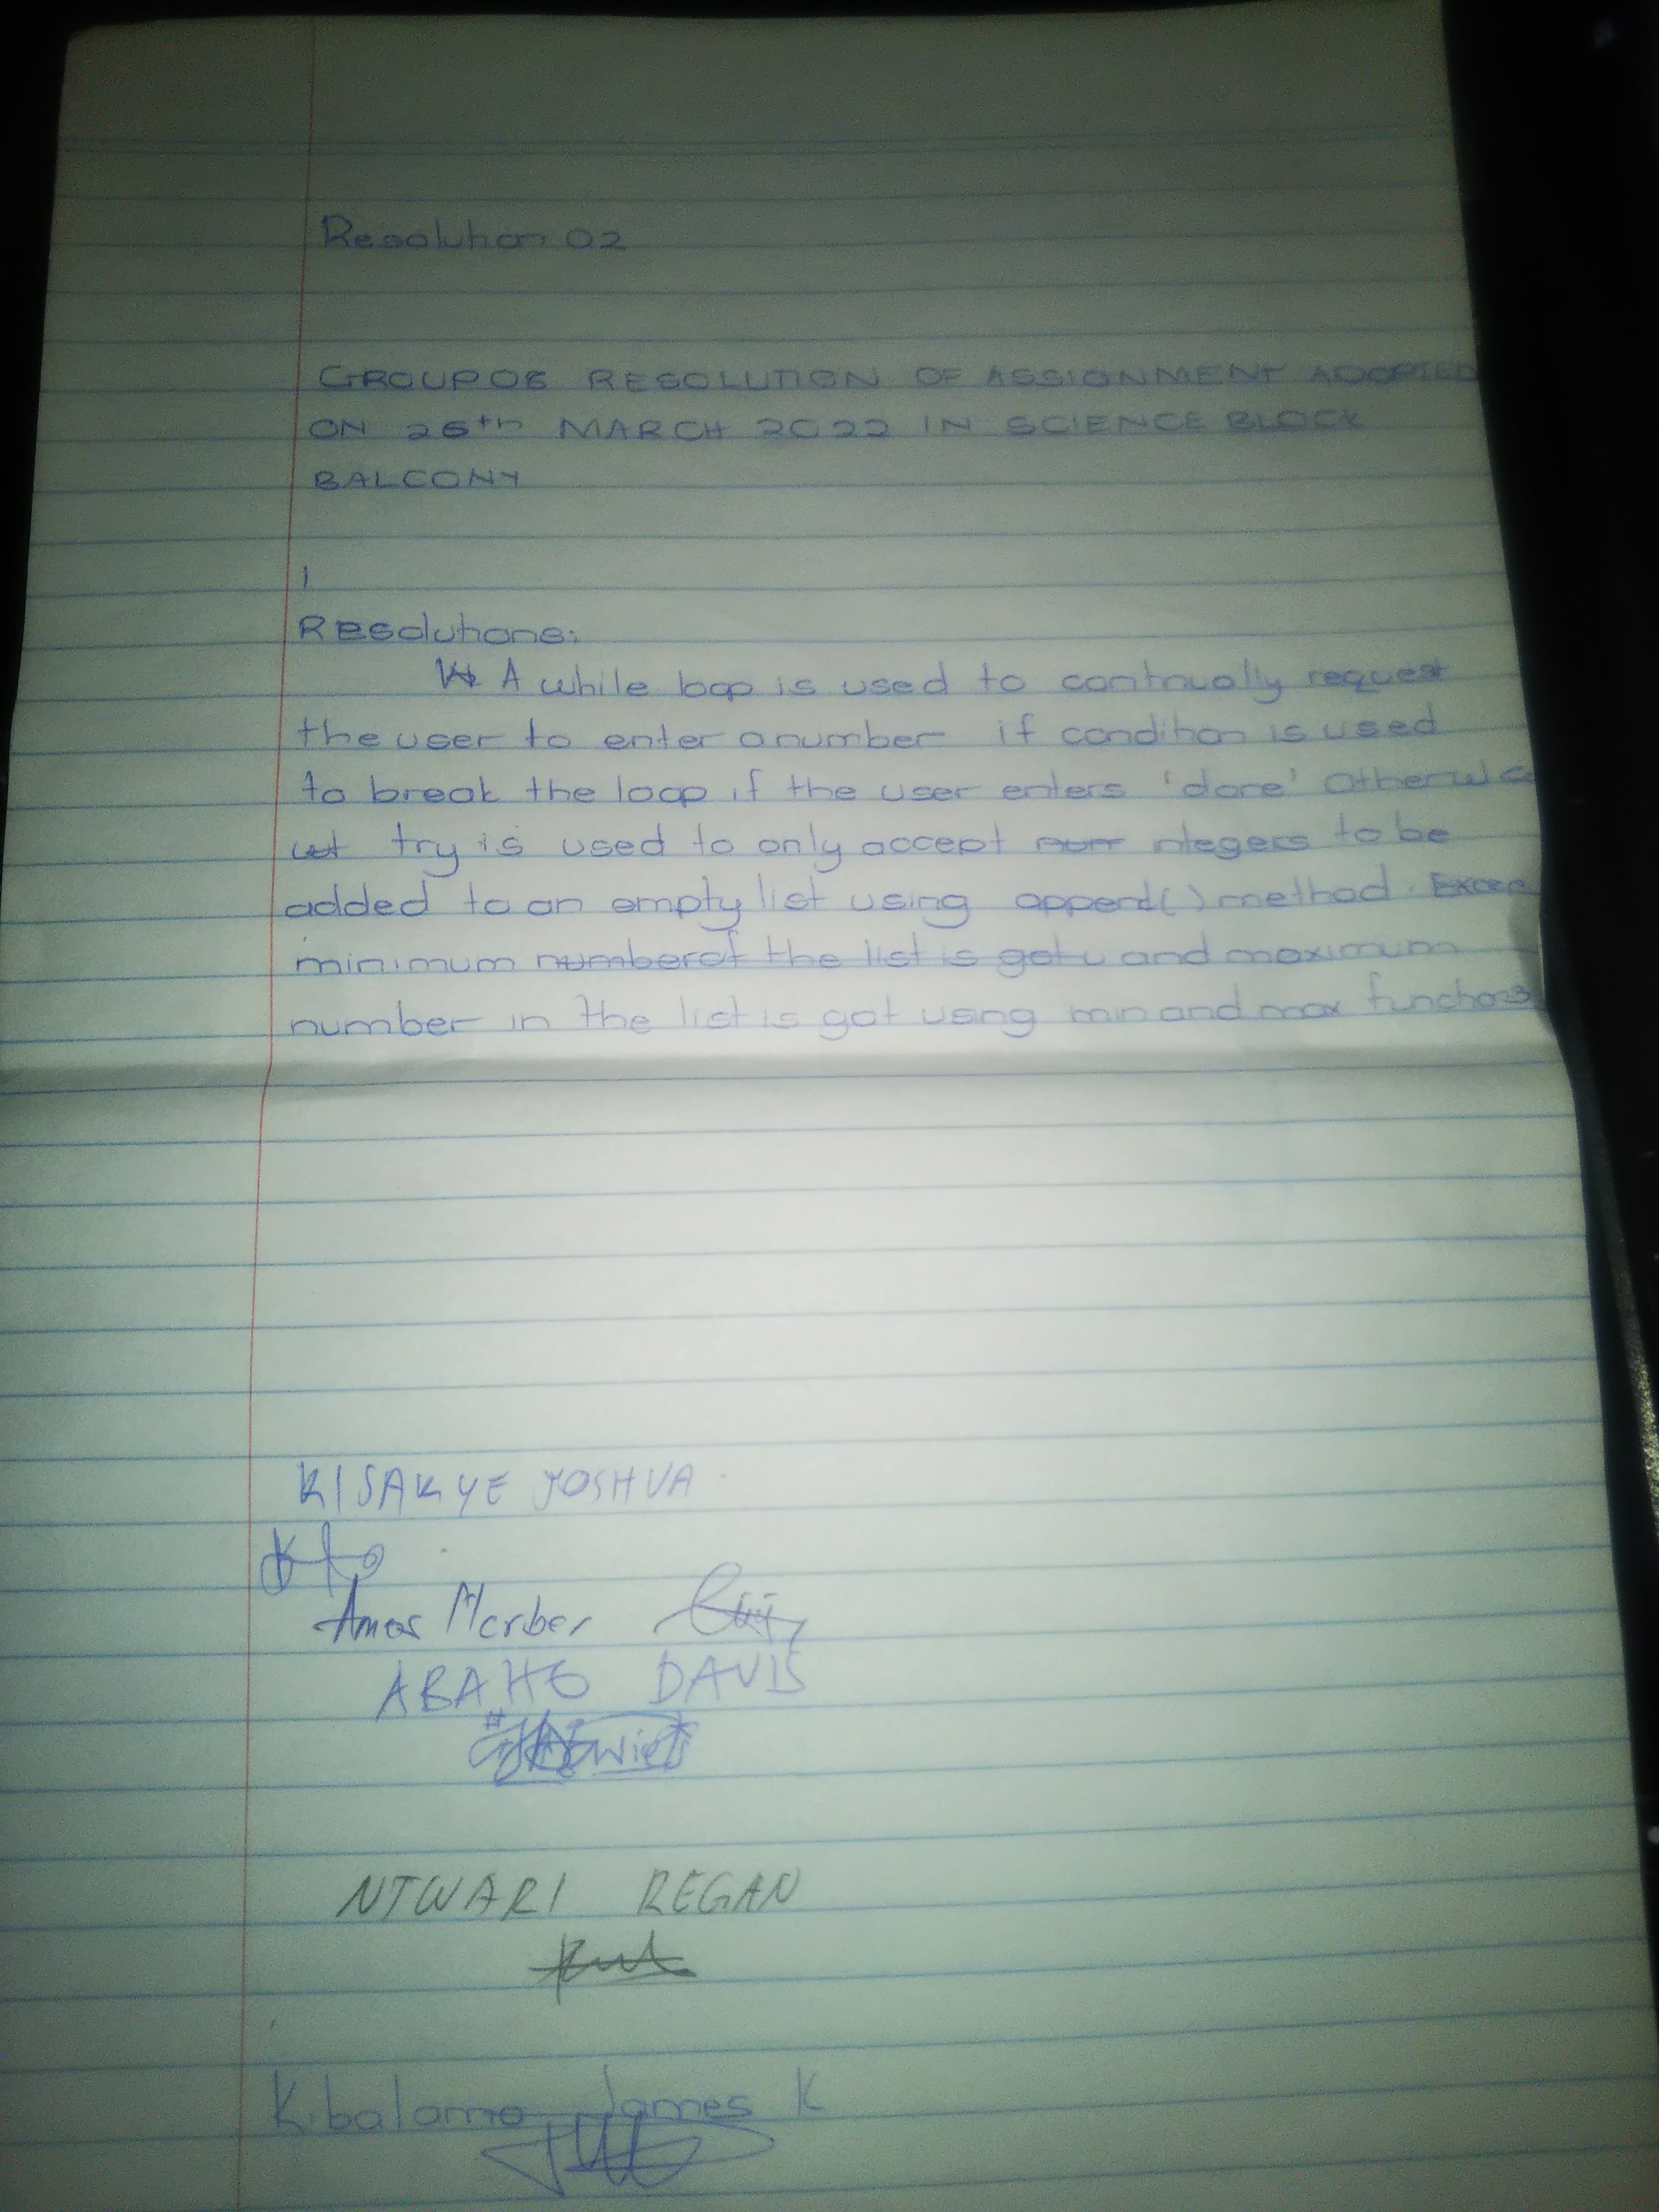 Resolution 02
GROUP 06 RESOLUTION OF ASSIGNMENT ADOPTED
ON 26th MARCH 2022 IN SCIENCE BLOCK
BALCONY
Resolutions:
A while loop is used to continually request
the user to enter a number if condition is used
to break the loop if the user enters 'done' Otherwise
try is used to only accept integers to be
added to an empty list using append() method.
minimum number of the list is got and maximum
number in the list is got using min and max functions
KISAKYE JOSHUA
Amos
ABAHO DAVIS
NTWARI REGAN
James K